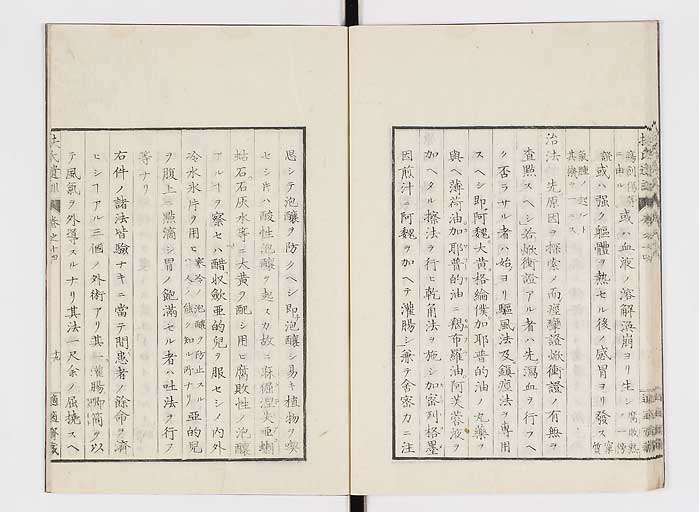 傷創傷等
ニ由ル 或ハ血液ノ溶解潰崩ヨリ生シ 腐敗熱
ノ一傍
證 或ハ强ク軀體ヲ熱セル後ノ感冒ヨリ發ス
治法 先原因ヲ探索ノ而痙攣證焮衝證ノ有無ヲ
查點スヘシ若焮衝證アル者ハ先瀉血ヲ行フヘ
ク否ラサル者ハ始ヨリ驅風法及鎮痙法ヲ專用
スヘシ即阿魏大黄格綸僕加耶普的油ノ丸藥ヲ
與ヘ薄荷油加耶普的油ニ羯布羅油阿芙蓉液ヲ
加ヘタル擦法ヲ行ヒ乾角法ヲ施シ加密列格墨
因煎汁ニ阿魏ヲ加ヘテ灌腸シ兼テ舎密力ニ注
思シテ泡釀ヲ防クヘシ即泡釀シ易キ植物ヲ喫
セシ片ハ酸性泡釀ヲ起スカ故ニ麻倔涅失亜蝲
蛄石石灰水等ニ大黄ヲ配シ用ヒ腐敗性ノ泡釀
アルヲ察セハ醋収歛亜的兒ヲ服セシメ内外
冷水氷片ヲ用ヒ 寒冷ノ泡釀ヲ防止スル
ヿ人ノ能ク知ル所ナリ 亜的兒
ヲ腹上ニ點滴シ胃ノ飽滿セル者ハ吐法ヲ行フ
等ナリ
右件ノ諸法皆驗ナキニ當テ間患者ノ餘命ヲ濟
ヒシヿアル三個ノ外術アリ其一灌腸唧筒ヲ以
テ風氣ヲ外導スルナリ其法一尺余ノ屈撓スヘ
扶氏遺訓 巻之十四
適適齋藏